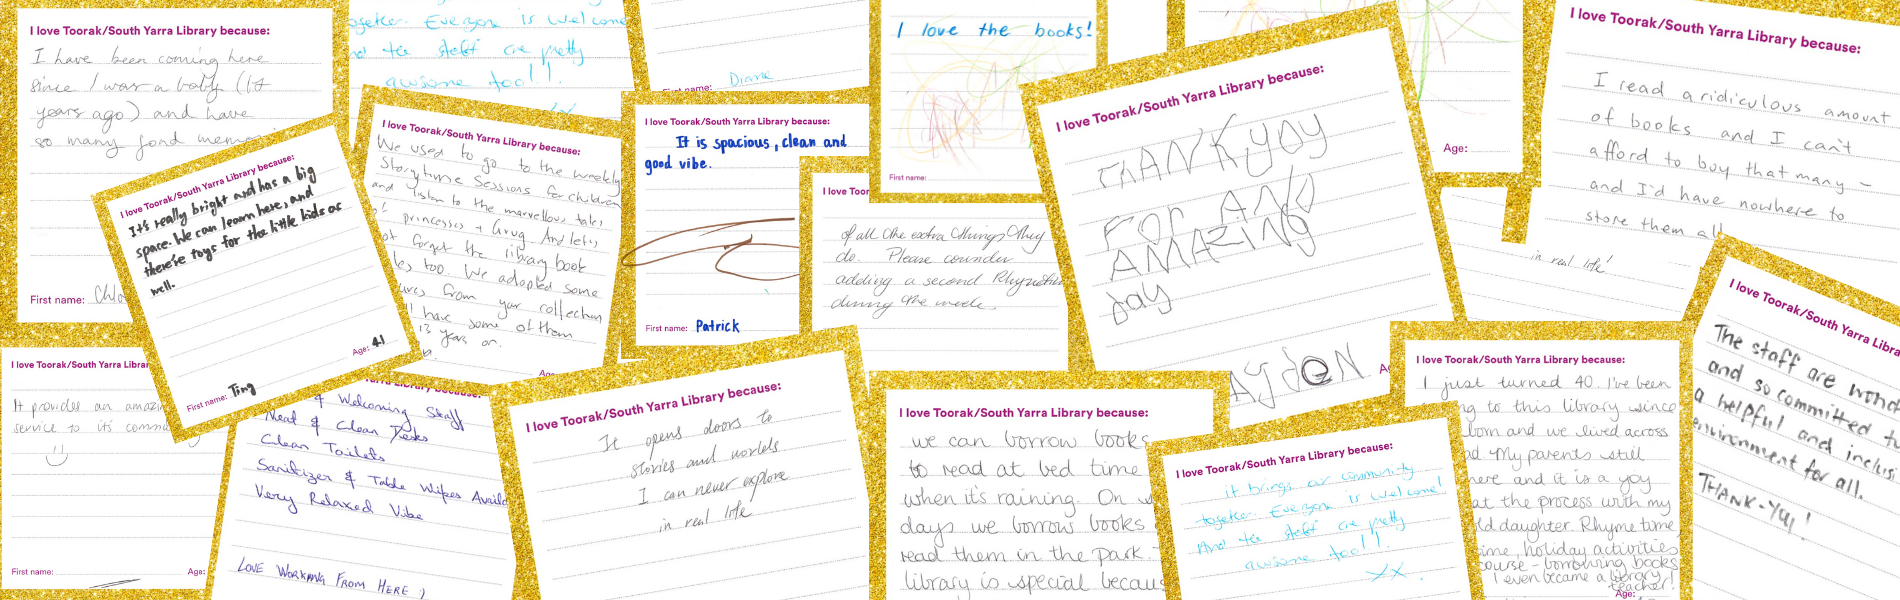 I love Toorak/South Yarra Library because:
I have been coming here
since I was a baby (17
years ago) and have
so many fond
First name:
together. Everyone is welcome
And the staff are pretty
awsome too!!.
Diane
First name:
I love the books!
First name:
Age:
I love Toorak/South Yarra Library because:
I read a ridiculous amount
of books and I can't
afford to buy that many –
and I'd have nowhere to
store them all
in real life!
I love Toorak/South Yarra Library because:
It's really bright and has a big
space. We can learn here, and
there're toys for the little kids as
well.
First name: Ting
Age: 41
I love Toorak/South Yarra Library because:
We used to go to the weekly
Storytime Sessions for children
and listen to the marvellous tales
princesses + Grug And let's
forget the library book
too. We adopted some
from your collection
have some of them
13 years on.
I love Toorak/South Yarra Library because:
It is spacious, clean and
good vibe.
First name: Patrick
I love
of all the extra things they
do. Please consider
adding a second
during the week
I love Toorak/South Yarra Library because:
THANKYOY
FOR AND
AMAZING
day
I love Toorak/South Yarra
It provides an
service to its
First name:
Age:
& Welcoming Staff
& Clean Desks
Clean Toilets
Sanitizer & Table Wipes
Very Relaxed Vibe
LOVE WORKING FROM HERE !
I love Toorak/South Yarra Library because:
It opens doors to
stories and worlds
I can never explore
in real life
I love Toorak/South Yarra Library because:
we can borrow books
to read at bed time
when it's raining. On
days we borrow books
read them in the park.
library is special
I love Toorak/South Yarra Library because:
it brings our community
together. Everyone is welcome!
And the staff are pretty
awsome too!!.
xx.
I love Toorak/South Yarra Library because:
I just turned 40. I've been
to this library since
born and we lived across
My parents still
here and it is a yoy
at the process with my
old daughter. Rhyme time,
holiday activities
course – borrowing books
I even became a library
teacher!
Age:
I love Toorak/South Yarra Library
The staff are
and so committed
a helpful and
environment for all.
THANK-YU!